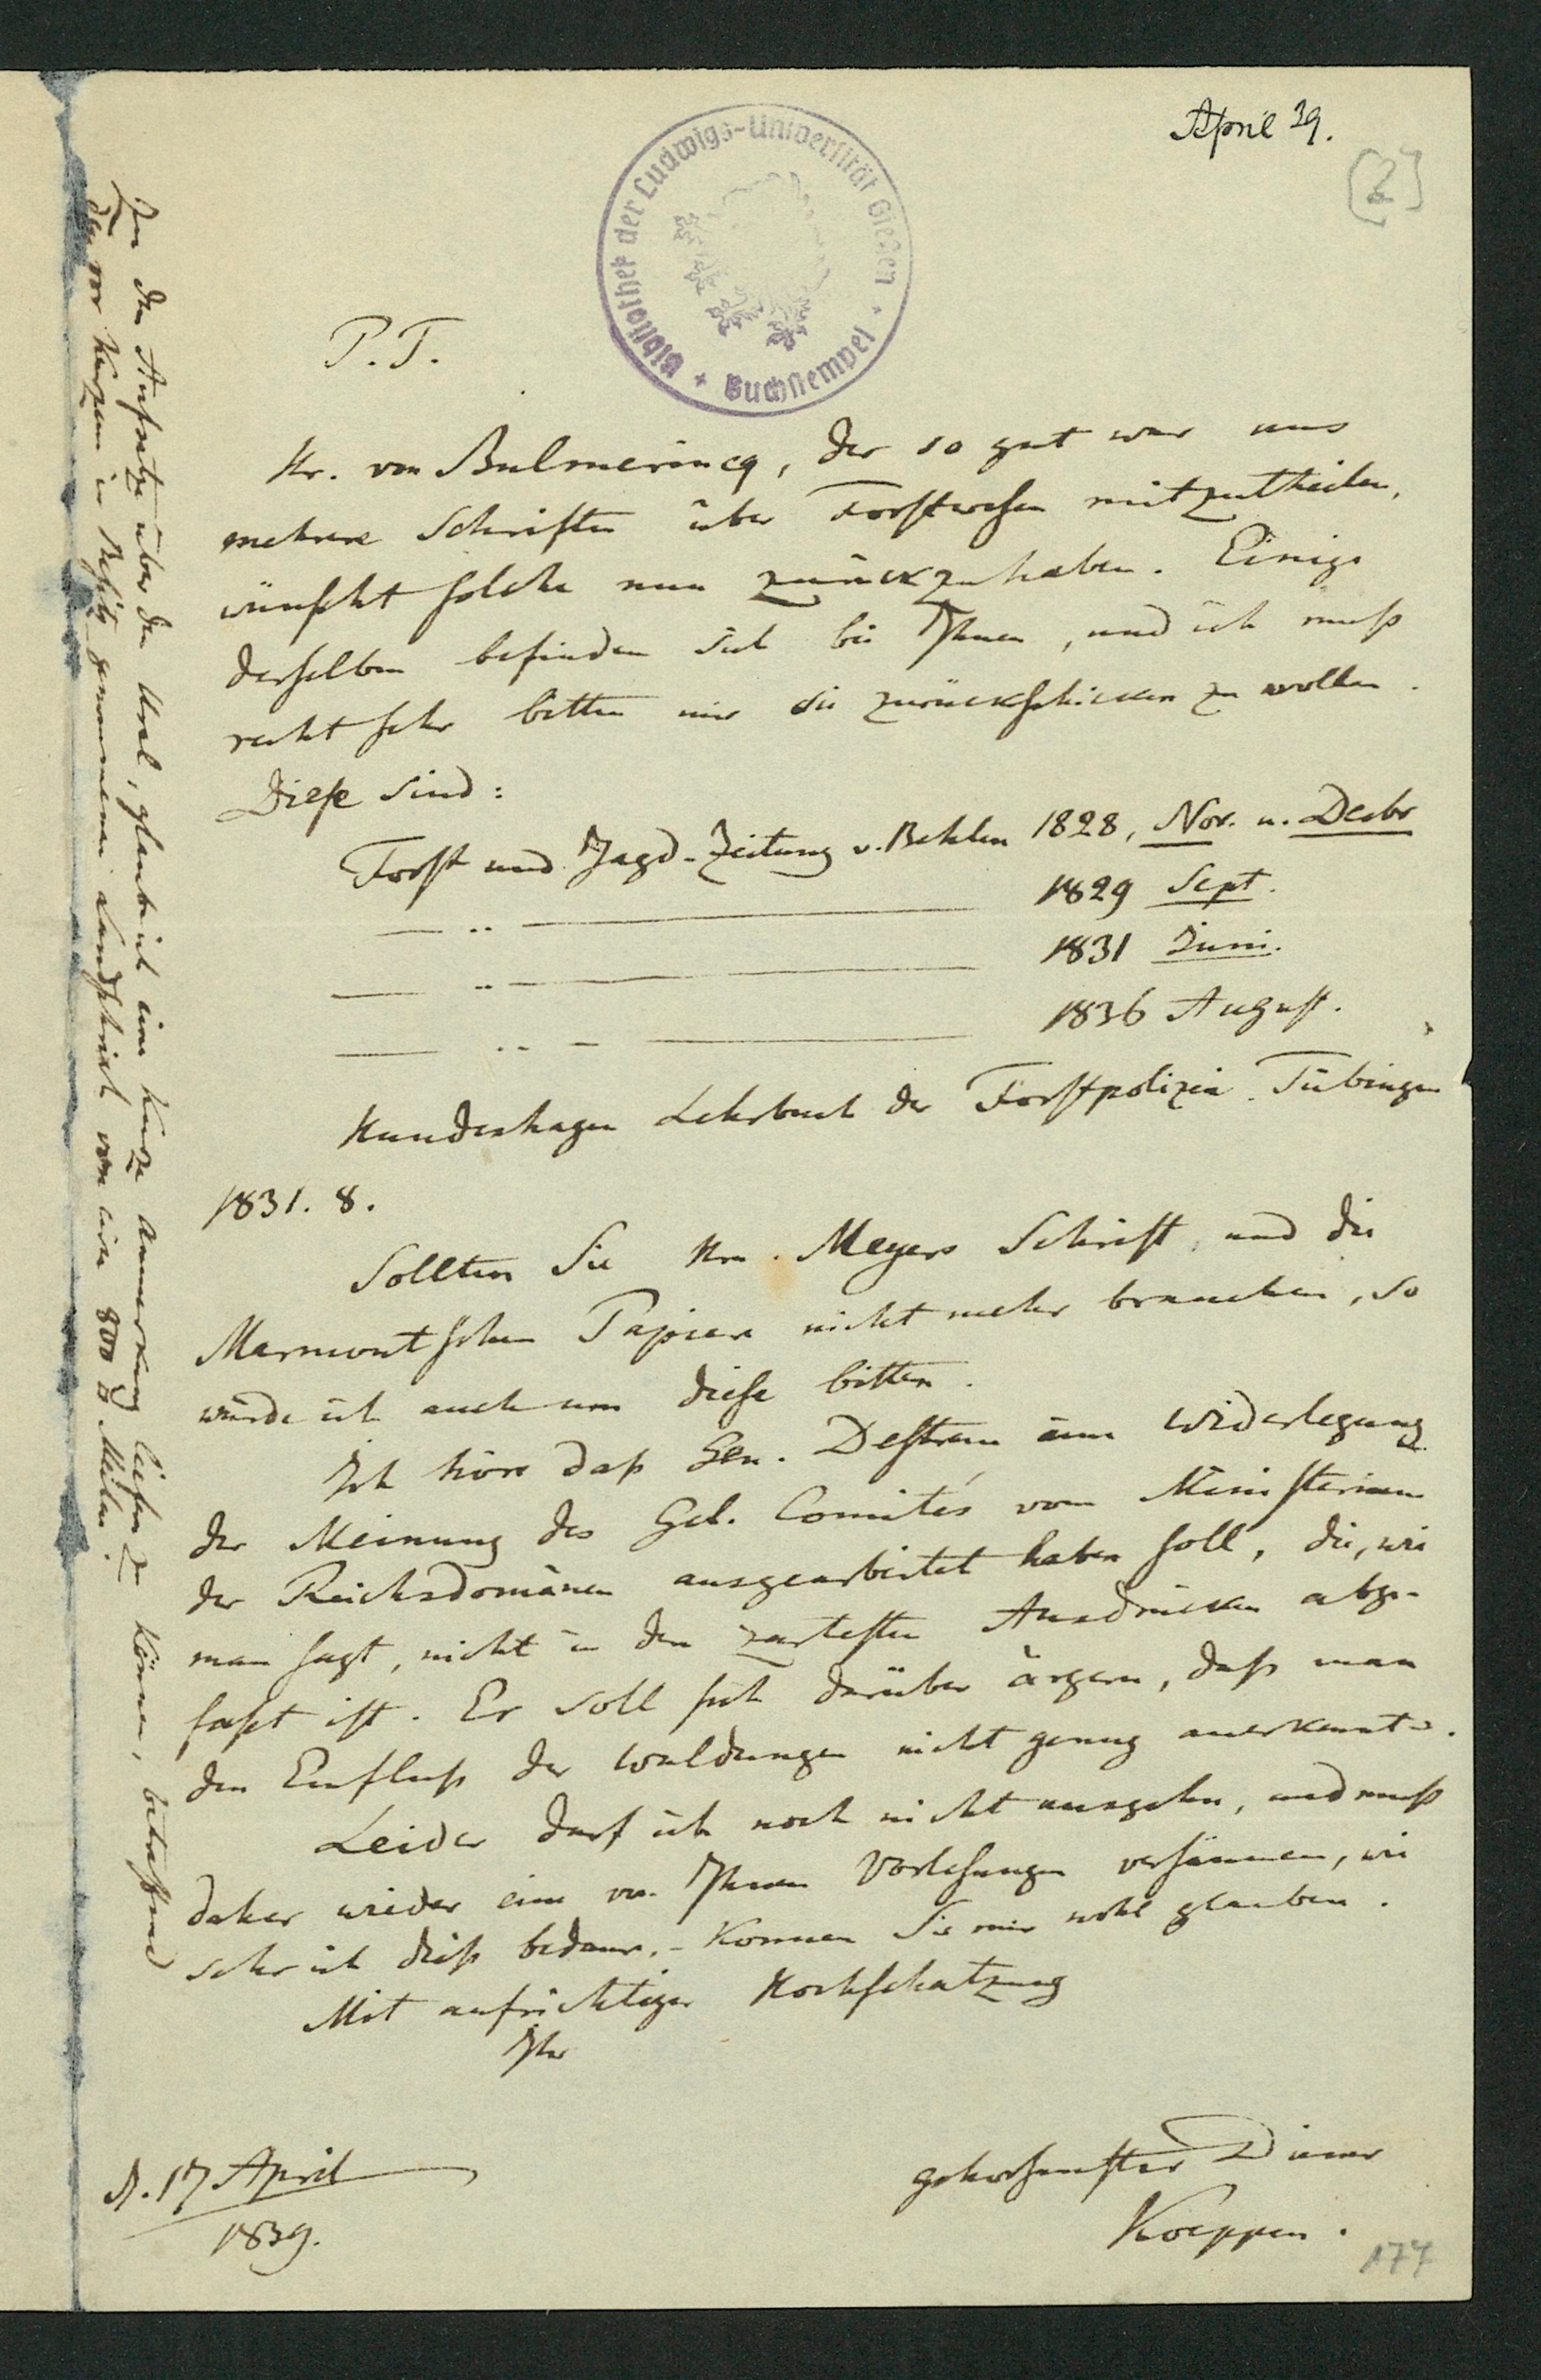 April 39.
[2]
Bibliothek der Ludwigs-Universität Gießen + Buchstempel +
P. T.
Hr. von Bulmerincq, der so gut war uns
mehrere Schriften über Forstwesen mitzutheilen,
wünscht solche nun zurückzuhaben. Einige
derselben befinden sich bei Ihnen, und ich muß
recht sehr bitten mir die zurückschicken zu wollen.
Diese sind:
Forst und Jagd-Zeitung v. Behlen 1828, Nov. u. Decbr
— .. — 1829 Sept.
— .. — 1831 Juni.
— .. — 1836 August.
Hundeshagen Lehrbuch der Forstpolizei. Tübingen
1831. 8.
Sollten Sie Hrn. Meyers Schrift, und die
Marmontschen Papiere nicht mehr brauchen, so
würde ich auch um diese bitten.
Ich höre daß Gen. Destrem eine Widerlegung
der Meinung des Gel. Comités vom Ministerium
der Reichsdomänen ausgearbeitet haben soll, die, wie
man sagt, nicht in den zartesten Ausdrücken abge-
faßt ist. Er soll sich darüber ärgern, daß man
den Einfluß der Waldungen nicht genug anerkennt.
Leider darf ich noch nicht ausgehn, und muß
daher wieder eine von Ihren Vorlesungen versäumen, wie
sehr ich dieß bedaure, – können Sie mir wohl glauben.
Mit aufrichtiger Hochschätzung
Ihr
gehorsamster Diener
Koeppen.
d. 17 April
1839.
177
Zu dem Aufsatze über den Ural, glaube ich eine kurze Anmerkung liefern zu können, betreffend
den vor Kurzem in Besitz genommenen Landstrich von circa 800 □ Meilen.